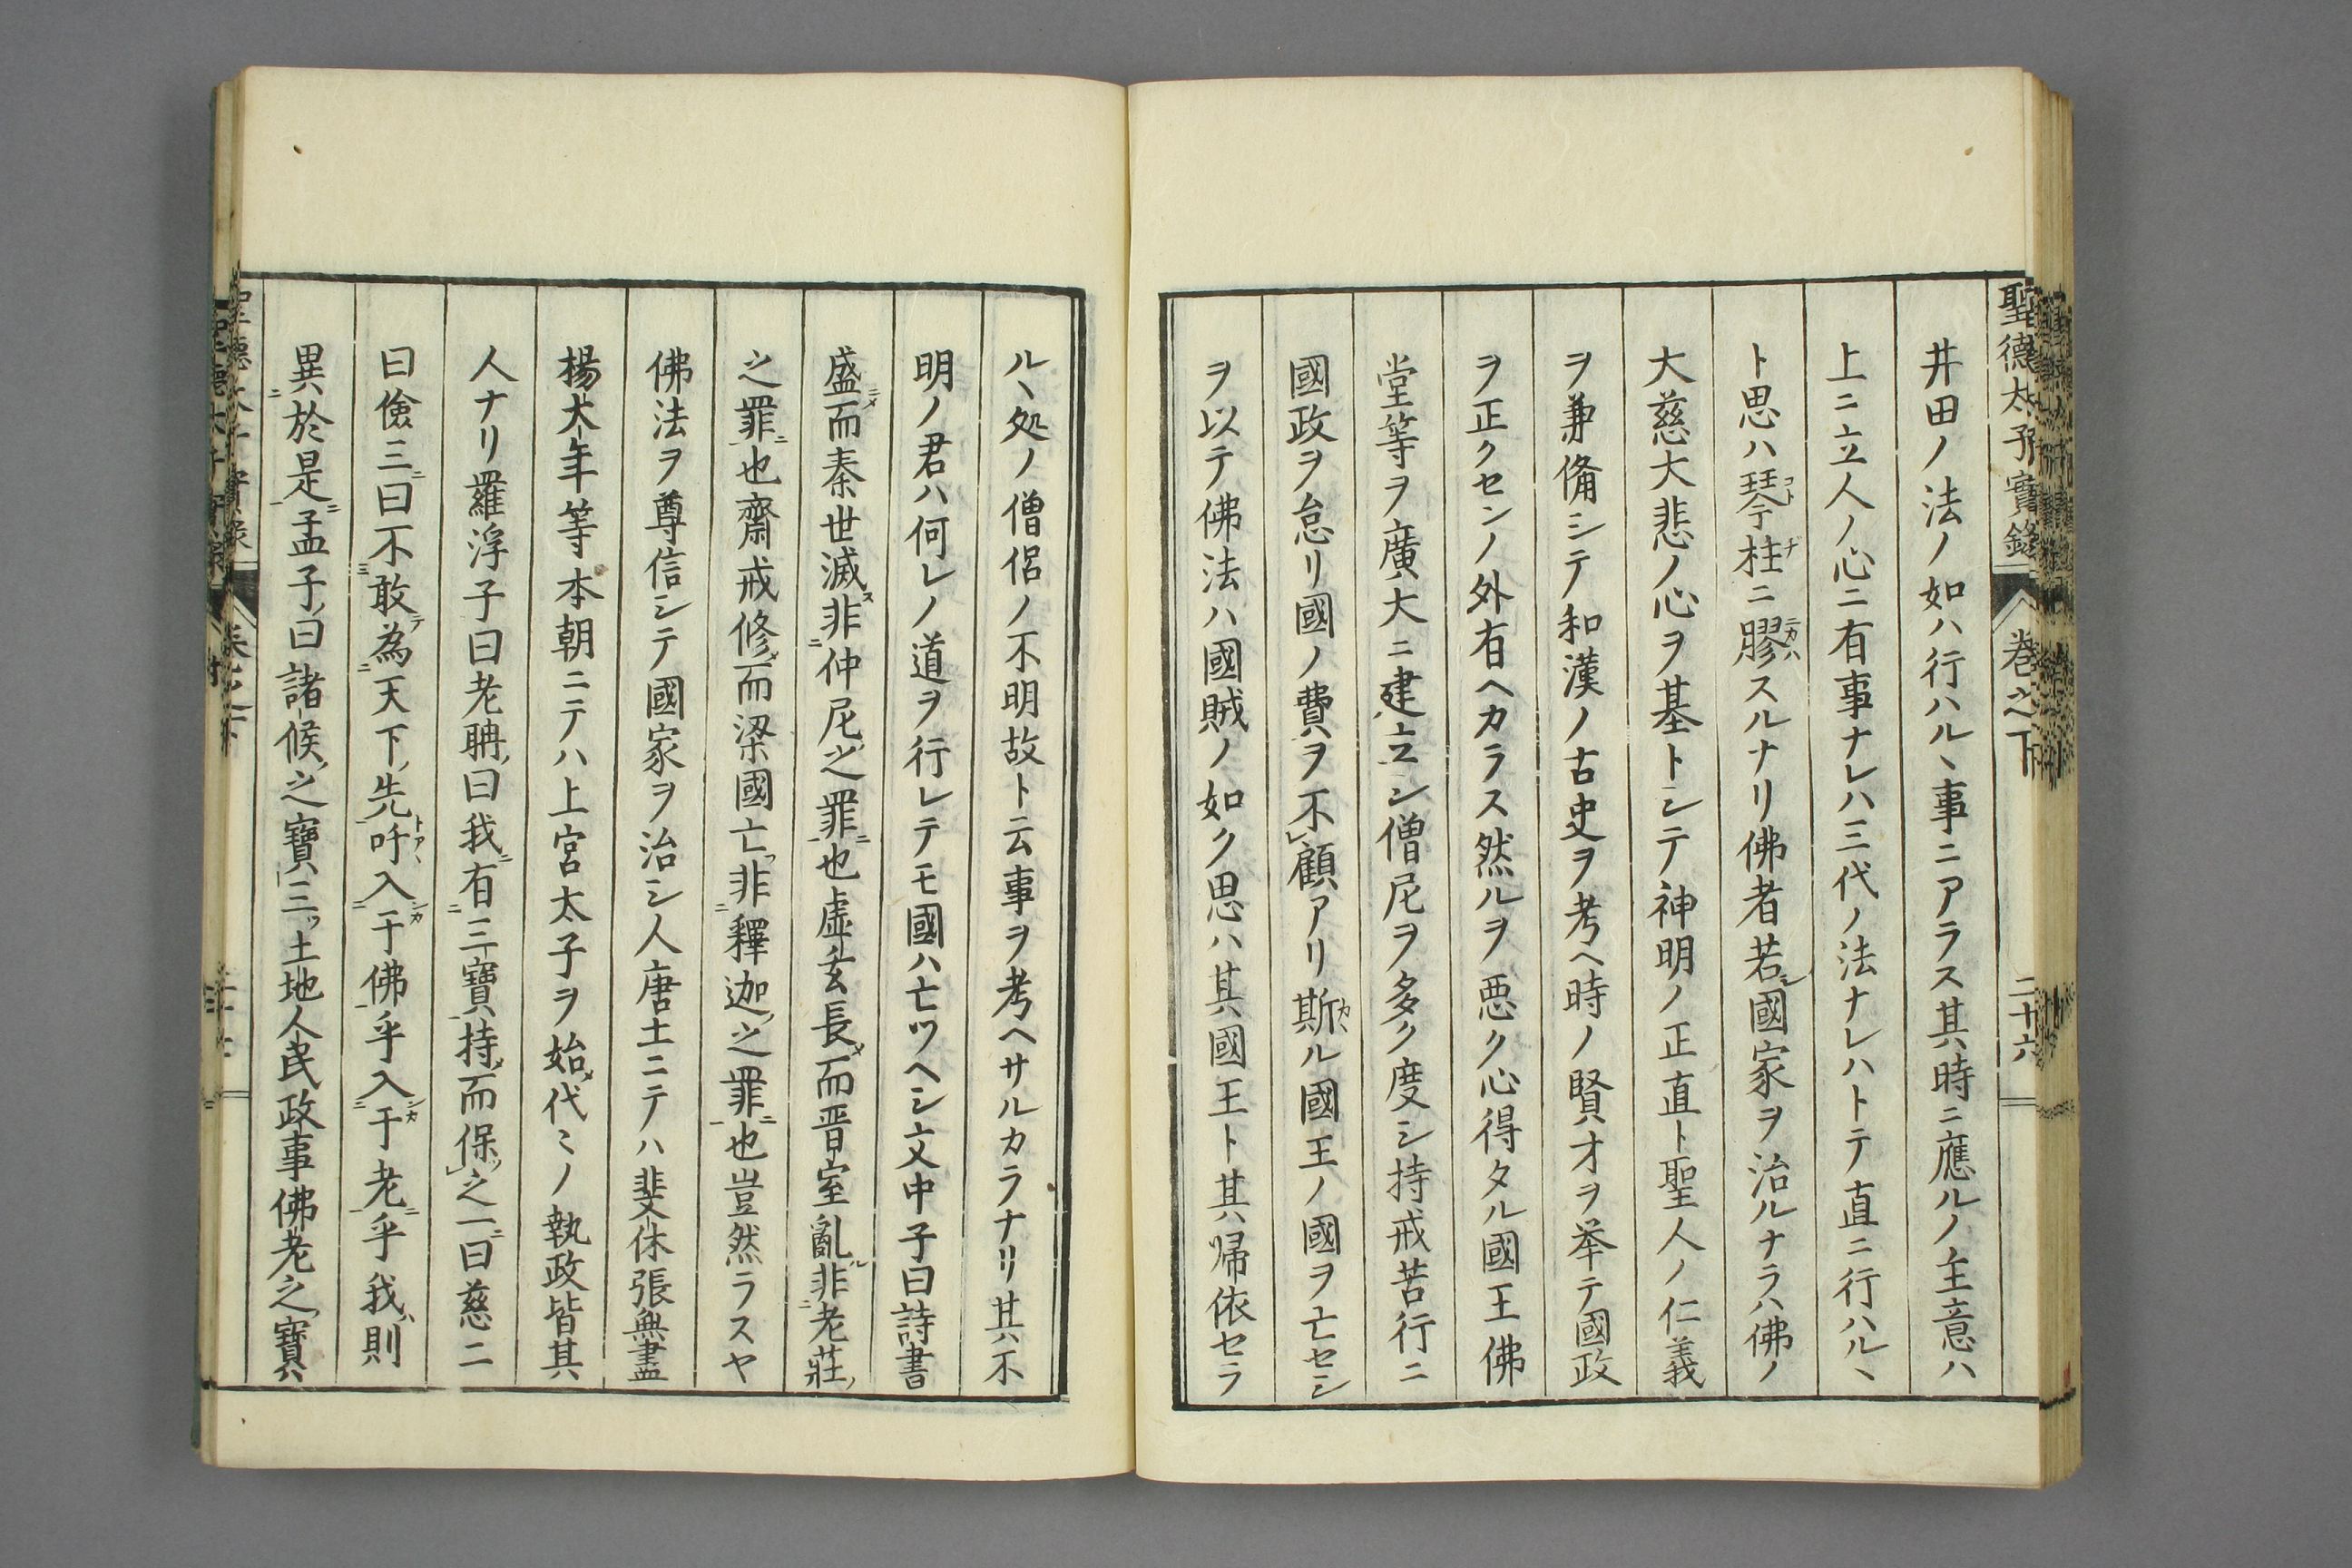 聖德太子實錄 卷之下 二十六
井田ノ法ノ如ハ行ハルヽ事ニアラス其時ニ應ルノ主意ハ
上ニ立人ノ心ニ有事ナレハ三代ノ法ナレハトテ直ニ行ハルヽ
ト思ハ琴柱ニ膠スルナリ佛者若國家ヲ治ルナラハ佛ノ
大慈大悲ノ心ヲ基トシテ神明ノ正直ト聖人ノ仁義
ヲ兼備シテ和漢ノ古史ヲ考ヘ時ノ賢才ヲ举テ國政
ヲ正クセンノ外有ヘカラス然ルヲ惡ク心得タル國王佛
堂等ヲ廣大ニ建立シ僧尼ヲ多ク度シ持戒苦行ニ
國政ヲ怠リ國ノ費ヲ不顧アリ斯ル國王ノ國ヲ亡セシ
ヲ以テ佛法ハ國賊ノ如ク思ハ其國王ト其帰依セラ
ルヽ処ノ僧侶ノ不明故ト云事ヲ考ヘサルカラナリ其不
明ノ君ハ何レノ道ヲ行レテモ國ハ亡ツヘシ文中子曰詩書
盛而秦世滅非仲尼之罪也虛玄長而晋室亂非老莊
之罪也齋戒修而梁國亡非釋迦之罪也豈然ラスヤ
佛法ヲ尊信シテ國家ヲ治シ人唐土ニテハ斐休張無盡
楊大年等本朝ニテハ上宮太子ヲ始代ミノ執政皆其
人ナリ羅浮子曰老聃曰我有三寶持而保之一曰慈二
曰儉三曰不敢為天下先吁入于佛乎入于老乎我則
異於是孟子曰諸候之寶三土地人民政事佛老之寶